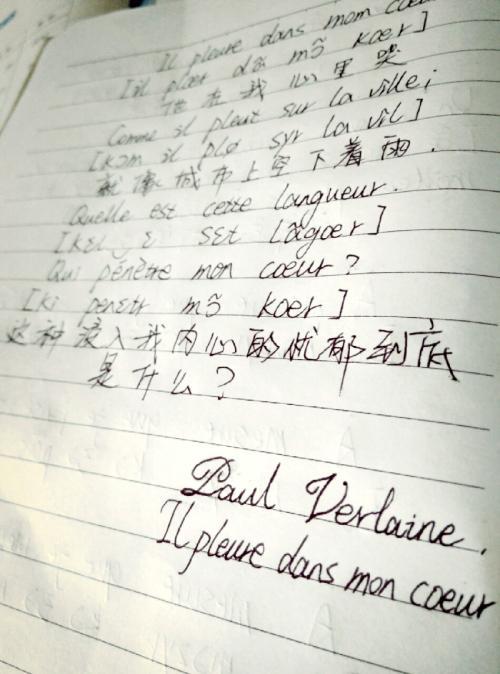 Il pleure dans mon coeu
[il plœr dã mɔ̃ kœr]
他在我心里哭
Comme il pleut sur la ville;
[kɔm il plø syr la vil]
就像城市上空下着雨.
Quelle est cette langueur.
[kɛl ɛ sɛt lãgœr]
Qui pénètre mon coeur?
[ki penɛtr mɔ̃ kœr]
这种浸入我内心的忧郁到底
是什么?
Paul Verlaine.
Il pleure dans mon coeur